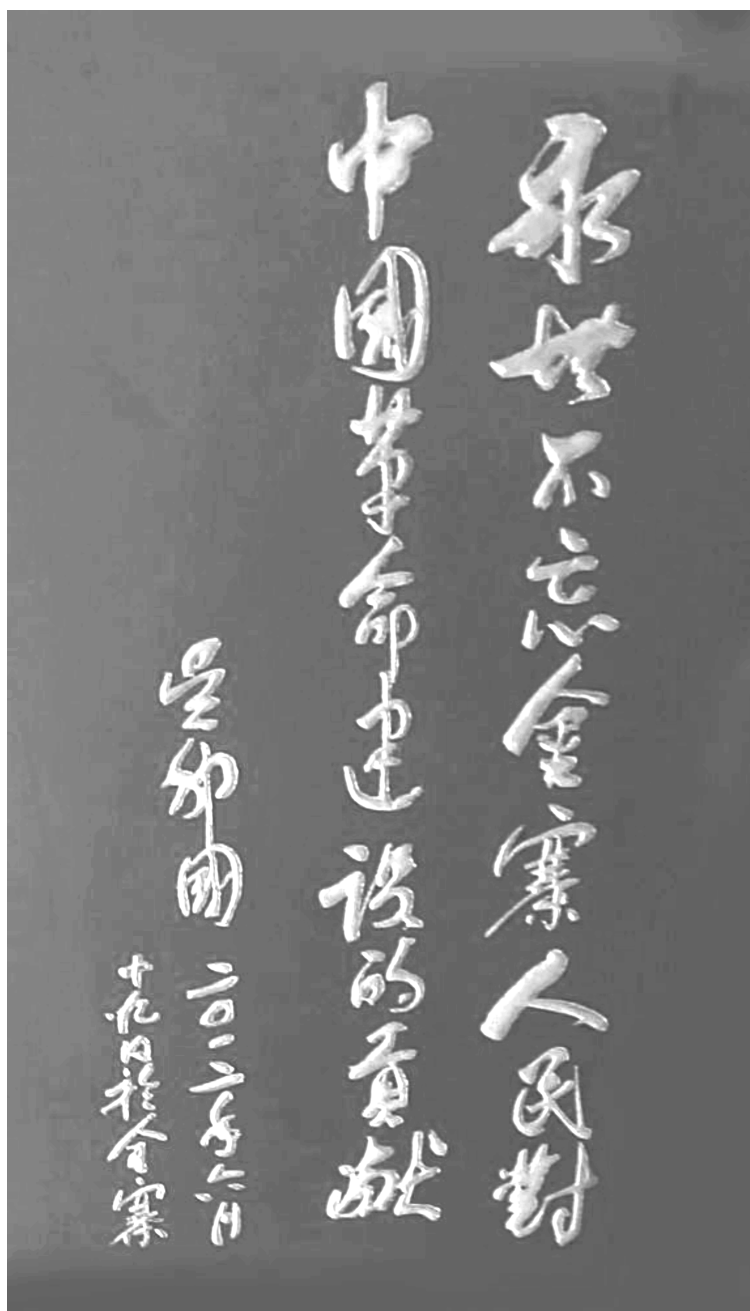 永世不忘金寨人民對
中國革命建設的貢献
吴邦國
二〇一二年六月
十九日於金寨